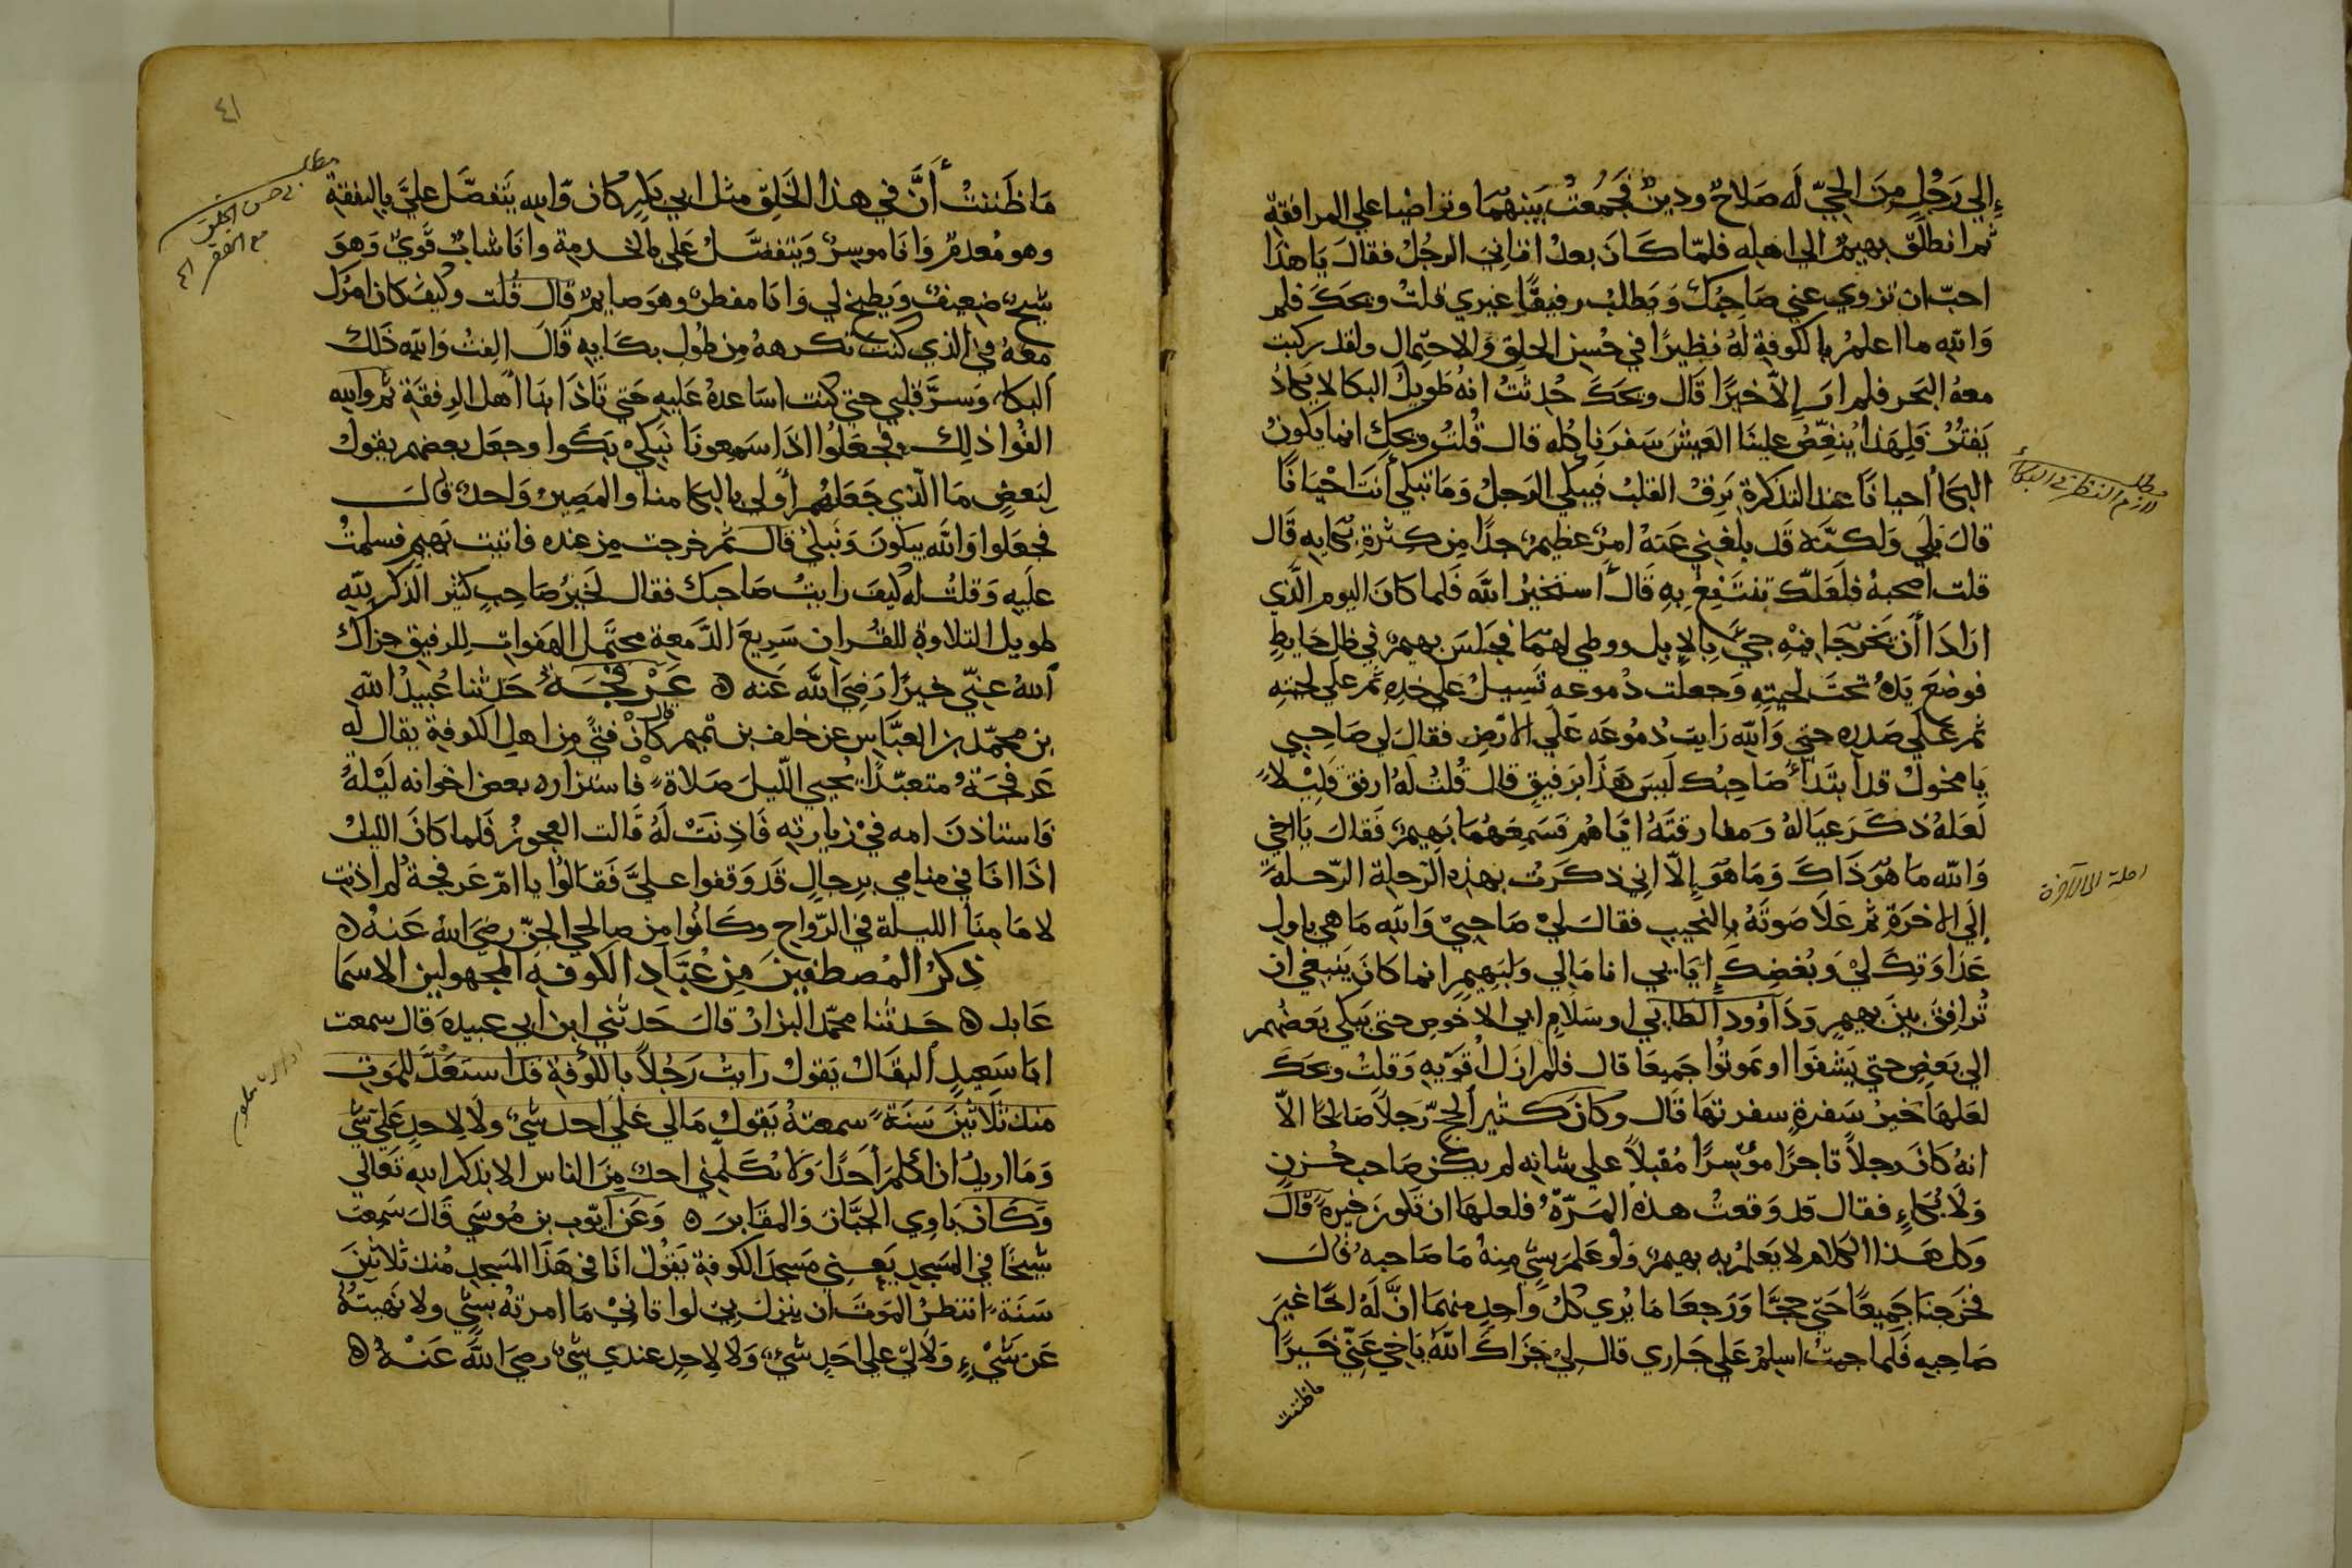 إلي رَجُلٍ مِنَ الحيّ لَه صَلاحٌ ودينٌ فجَمَعْتُ بَينهُمَا وتواضيا علي المرافقة
ثم انطلق بهيمٌ الي اهله فلمّا كَانَ بعدُ اتاني الرجُلُ فقالَ يَا هذا
احبّ ان تزوي عني صَاحِبَكَ وَتطلب رفيقًا غيري قلتُ ويحَكَ فلم
وَالله ما اعلمُ بالكوفةِ لهُ نظيرًا في حُسنِ الخلق وَالاحتمالِ ولقد ركبت
معهُ البَحر فلم ارَ إلّا خيرًا قَال ويحَكَ حُدثتُ انهُ طَويلُ البكا لا يكادُ
يَفتُرُ فَلِهَذا يُنغِّصُ علينَا العَيشَ سَفَرَنا كلّه قال قُلتُ ويحَك انما يَكونُ
البكاُ احيانًا عند التذكرةِ يَرِقّ القلبُ فيَبكي الرَجلُ وَمَا تبكي أنتَ احْيَانًا
قالَ بَلَي وَلكنَّه قد بلغَني عَنهُ امرٌ عظيمٌ جدًا مِن كثرةِ بكايه قَال
قلت اصحبهُ فلعَلّكَ تنتَفِعُ بِهِ قَالَ استخيرُ اللهَ فَلما كَانَ اليوم الَّذي
ارَادَا أَن يَخرُجَا فيْهِ جيَ بِالإبِلِ ووطي لهُمَا فجَلسَ بهيمٌ في ظل حَايطٍ
فوضعَ يَدهُ تحتَ لحيتِهِ وَجعلت دُموعه تَسِيلُ علي خدهِ ثم علي لحيتِهِ
ثم علَي صَدرِه حتي وَاللهِ رَايت دُمُوعَه عَلَي الارَضِ فقالَ لي صَاحِبي
يَا مخولُ قد ابتَدَأ صَاحِبُكَ لَيسَ هَذَا برَفيقٍ قال قُلتُ لهُ ارفق قَلِيْلاً
لَعَلهُ ذكَرَ عيَالهُ وَمفارقتَهُ ايّاهُم فَسَمِعَهُمَا بَهِيمٌ فَقالَ يَا اخي
وَالله مَا هوَ ذَاكَ وَمَا هوَ إِلّا اني ذكَرت بهذه الرّحلةِ الرّحلة
إلَي الاخرَةِ ثم عَلَا صَوتهُ بالنحيبِ فقالَ ليْ صَاحِبيْ وَاللهِ مَا هي باولِ
عَدَاوَتِكَ ليْ وَبُغضِكَ ايَايي انا مَالي وَلبَهيمٍ انما كَانَ يَنبَغي ان
تُرافِقَ بينَ بهيمٍ وَدَاوُود الطايي اوسَلَامِ ابي الاحوصِ حتي يَبكي بَعضُهم
الي بَعضٍ حتي يَشفَوا اوتموتُوا جَميعًا قال فلم ازل ارفق بهِ وَقلتُ ويحَكَ
لعَلهَا خيرُ سَفرةٍ سفرتهَا قَال وكانَ كثير الحجّ رَجلاً صَالحًا الّا
انهُ كانَ رجلاً تاجرًا موسِرًا مُقبلاً علي شانه لم يكن صَاحب حُزنٍ
وَلَا بُكاءٍ فقال قد وَقعتُ هذه المَرّةُ فلعلهَا ان تكونَ خيرةً قَالَ
وَكل هَذا الكلام لا يَعلمُ بِه بهيمٌ وَلو عَلمَ بشي مِنهُ مَا صَاحبهُ قَالَ
فخرَجنَا جَميعًا حتي حجّا وَرَجعَا مَا يُري كلُ واحدٍ منهما انَّ لَه اخًا غيرَ
صَاحِبهِ فَلما جيتُ اسلمُ عَلي جَاري قال ليْ جَزَاكَ اللهُ يَا اخي عَنّي خَيرًا
ما ظننت
رحلة الى الآخرة
٤١
مَا ظَننتُ أَنَّ في هذا الخَلقِ مثل ابي بكرٍ كان وَاللهِ يَتفضّل عليَّ بالنفقة
وهو مُعدمٌ وَانا موسِرٌ وَيتفضّلُ عَلي بالخدمة وانا شابٌ قَويٌ وَهوَ
شيخٌ ضعيفٌ وَيطبخ لي وَانا مفطرٌ وهوَ صايمٌ قال قُلت وكيفَ كان امرُكَ
معَهُ في الذي كنتَ تكرههُ مِن طُولِ بكَايه قَالَ الِفتُ وَاللهِ ذَلك
البكاَ وَسرَّ قَلبي حتي كنت اسَاعدهُ عَليهِ حَتي تَاذَا بنَا اهل الرفقَة ثم واللهِ
الفُوا ذلِكَ فجَعَلُوا اذَا سَمعونَا نَبكيْ بَكَوا وجعَل بعضهم يقولُ
لبَعضٍ مَا الَّذي جَعَلهُم أولي بالبكا منا والمَصِيرُ وَاحدٌ قَالَ
فجعَلوا وَاللهِ يبكونَ وَنَبكيْ قالَ ثم خرجت مِن عِنده فاتيت بَهيم فسلمتُ
علَيهِ وَقلتُ لهُ كيفَ رايتَ صَاحبكَ فقال لَخَيرُ صَاحِبٍ كثير الذكرِ للهِ
طويل التلاوةِ للقُرانِ سَريعَ الدَّمعةِ محتَمل الهَفواتِ للرفيقِ جزاكَ
اللهُ عنِّي خيرًا رَضيَ اللهُ عَنه ه عَرْفَجَةُ حَدثنا عُبيدُ اللهِ
بن محمّد بن العبَّاسِ عن خلف بن تميم قال كانَ فتيً مِن اهلِ الكوفةِ يقال لَه
عَرفجَةُ متعبّدًا يُحيي اللّيلَ صَلاةً فاستزاره بعض اخوانه لَيْلَةً
فَاستاذنَ امه فيْ زيارته فَاذِنَتْ لَهُ قَالت العجوزُ فَلما كانَ الليلُ
اذَا انَا في منامي برِجالٍ قَد وَقفوا عليَّ فَقالُوا يا امّ عَرفجةَ لم اذنت
لامَامِنَا الليلة في الرّواح وكَانُوا مِن صالحي الجنّ رضيَ اللهُ عَنهُ ه
ذِكرُ المُصطفينَ مِن عُبَّادِ الكُوفهِ المجهولين الاسمَا
عَابد ه حَدثنا محمّد البزارُ قالَ حَدثني ابن ابي عبيدةَ قَال سمعت
ابَا سَعيدٍ البقالَ يَقولُ رايتُ رَجُلاً بالكُوفةِ قد استَعَدَّ للمَوتِ
منذ ثَلاثينَ سَنَةً سمعتهُ يَقول مَالي عَلَي احد شيٌ ولَا لاحدٍ عَليَّ شي
وَمَا اريدُ ان اكلمَ أحَدًا وَلا يُكَلِّمني احدٌ مِنَ الناس الا بذكر اللهِ تَعَالي
وَكانَ يَاوِي الجبَّانَ وَالمقَابرَ ه وَعَن ايّوب بن مُوسَي قَالَ سَمِعت
شيخًا في المَسجدِ يَعني مَسجدَ الكوفةِ يَقُولُ انَا في هَذَا المَسجدِ مُنذ ثلاثينَ
سَنَةً انتظرُ الموتَ ان ينزلَ بي لو اتانيْ مَا امرتهُ بشيٍ ولا نَهيتُهُ
عَن شَيْءٍ وَلا ليْ علي احَدٍ شيٌ وَلا لاحِدٍ عندي شيٌ رضيَ اللهُ عَنْهُ ه
مطلب في حسن الخلق
مع الفقر